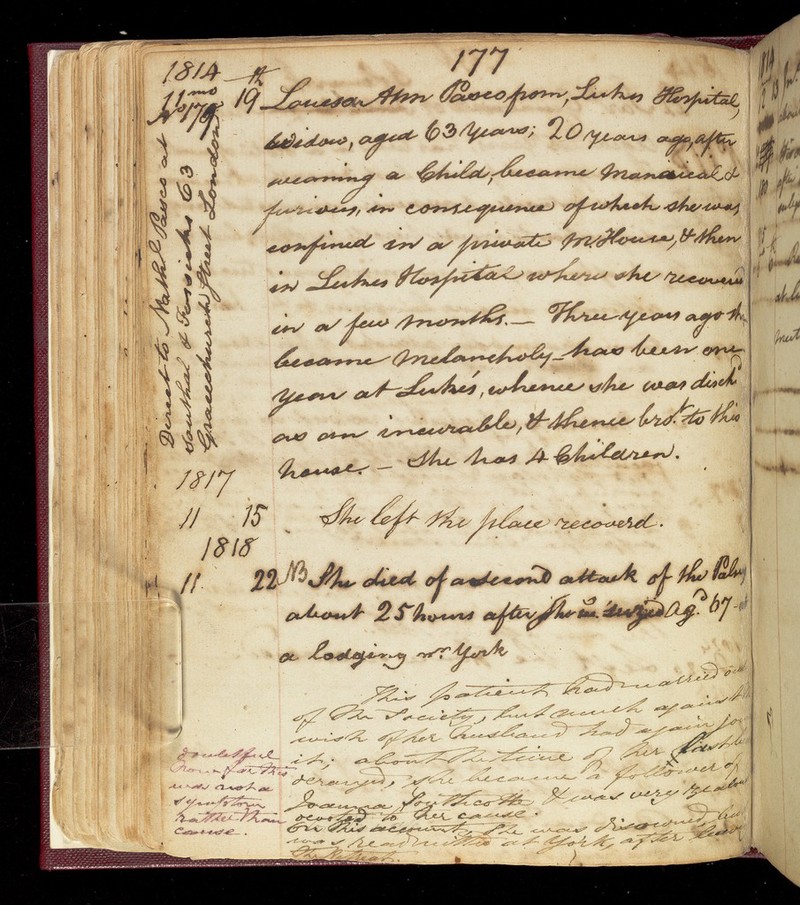 177
1814
11mo 19th
No 179
Louesa Ann Pasco from, Lukes Hospital,
Widow, aged 63 years; 20 years ago, after
weaning a Child, became Maniacal &
furious, in consequence of which she was
confined in a private M. House, & then
in Lukes Hospital where she recovered
in a few months. — Three years ago she
became Melancholy — has been one
year at Luke's, whence she was dischd
as an incurable, & thence brot to this
house. — She has 4 Children.
Direct to Nathl Pasco at
Southal &
63
Gracechurch Street London
1817
11 15 She left the place recoverd.
1818
11 22 NB She died of a second attack of the Palsy
about 25 hours after seized Agd 67 at
a lodging nr York
This patient had married out
of the Society, but much against the
wish of her husband had again
it; about the time of her first
deranged, she became a follower of
Joanna Southcott & was very
devoted to her cause.
On this account she was disowned, but
was readmitted at York, after
the Retreat.
doubtful
how far this
was not a
symptom
rather than
cause.